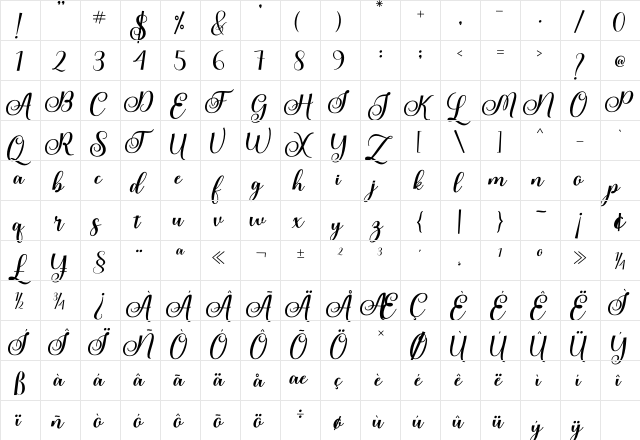 ! " # $ % & ' ( ) * + , - . / 0
1 2 3 4 5 6 7 8 9 : ; < = > ? @
A B C D E F G H I J K L M N O P
Q R S T U V W X Y Z [ \ ] ^ _ `
a b c d e f g h i j k l m n o p
q r s t u v w x y z { | } ~ ¡ ¢
£ ¥ § ¨ ª « ¬ ± ² ³ ´ · ¹ º » ¼
½ ¾ ¿ À Á Â Ã Ä Å Æ Ç È É Ê Ë Ì
Í Î Ï Ñ Ò Ó Ô Õ Ö × Ø Ù Ú Û Ü Ý
ß à á â ã ä å æ ç è é ê ë ì í î
ï ñ ò ó ô õ ö ÷ ø ù ú û ü ý ÿ